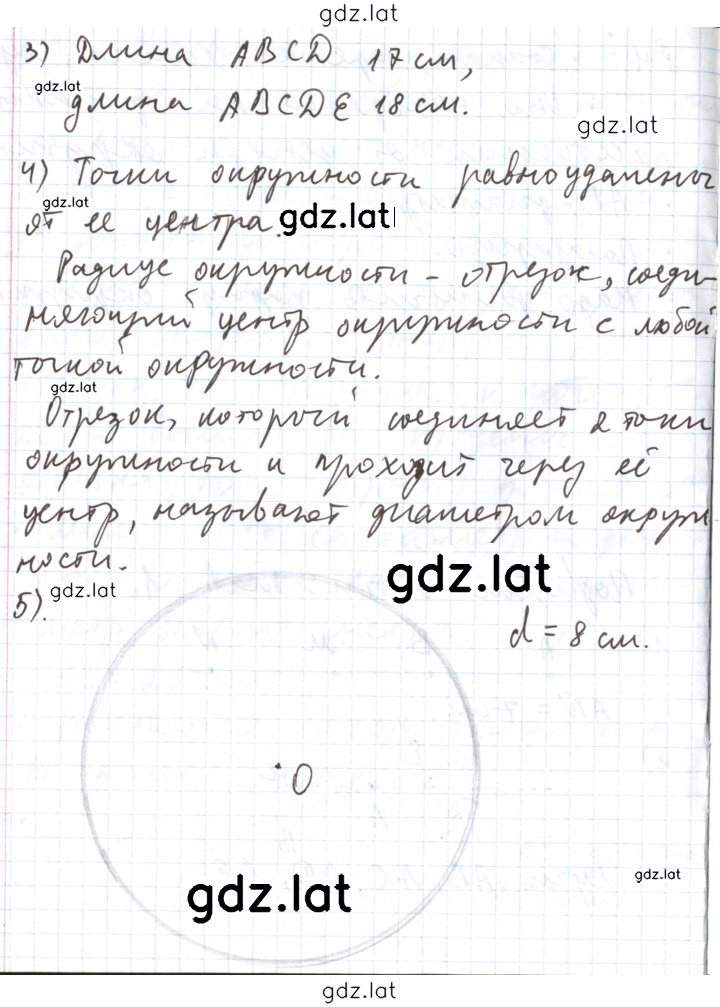 gdz.lat
3) Длина ABCD 17 см,
gdz.lat
длина ABCDE 18 см.
gdz.lat
4) Точки окружности равноудалены
gdz.lat
от ее центра. gdz.lat
Радиус окружности - отрезок, соеди-
няющий центр окружности с любой
точкой окружности.
gdz.lat
Отрезок, который соединяет 2 точки
окружности и проходит через её
центр, называют диаметром окруж
ности.
gdz.lat
gdz.lat
5).
d = 8 см.
O
gdz.lat
gdz.lat
gdz.lat